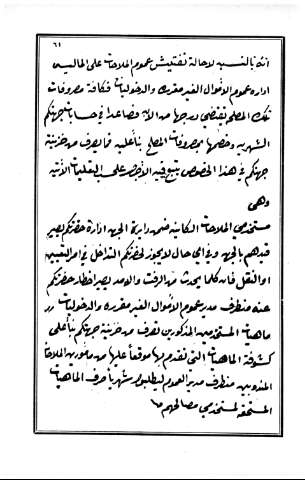 ٦١
انه بالنسبه لاحالة تفتيش عموم الملاحات على الماليه
اداره عموم الاموال الغير مقرره والدخوليات فكافة مصروفات
تلك المصلحه يقتضى درجها من الآن فصاعدا فى حسابات جهتكم
الشهريه وخصمها بمصروفات المصلحه بناء عليه فما يصرف من خزينة
جهتكم فى هذا الخصوص تتبع فيه الأجرى على حسب التعليمات الآتيه
وهى
مستخدمى الملاحات الكاينه ضمن دايرة الجهه ادارة حضرتكم يصير
قيدهم بالجهه وفى اى حال لا يجوز لحضرتكم التداخل فى امر التعيين
او النقل فانه كلما يحدث من الرفت والامد يصير اخطار حضرتكم
عنه من طرف مدير عموم الاموال الغير مقرره والدخوليات
ماهيات المستخدمين المذكورين تصرف من خزينة جهتكم بناء على
كشوفة الماهيات التى تقدم لها موقعا عليها من مأمورين الملاحات
المندوبين من طرف مدير العموم ليطلبوا شهريا صرف الماهيات
المستحقه لمستخدمى مصالحهم